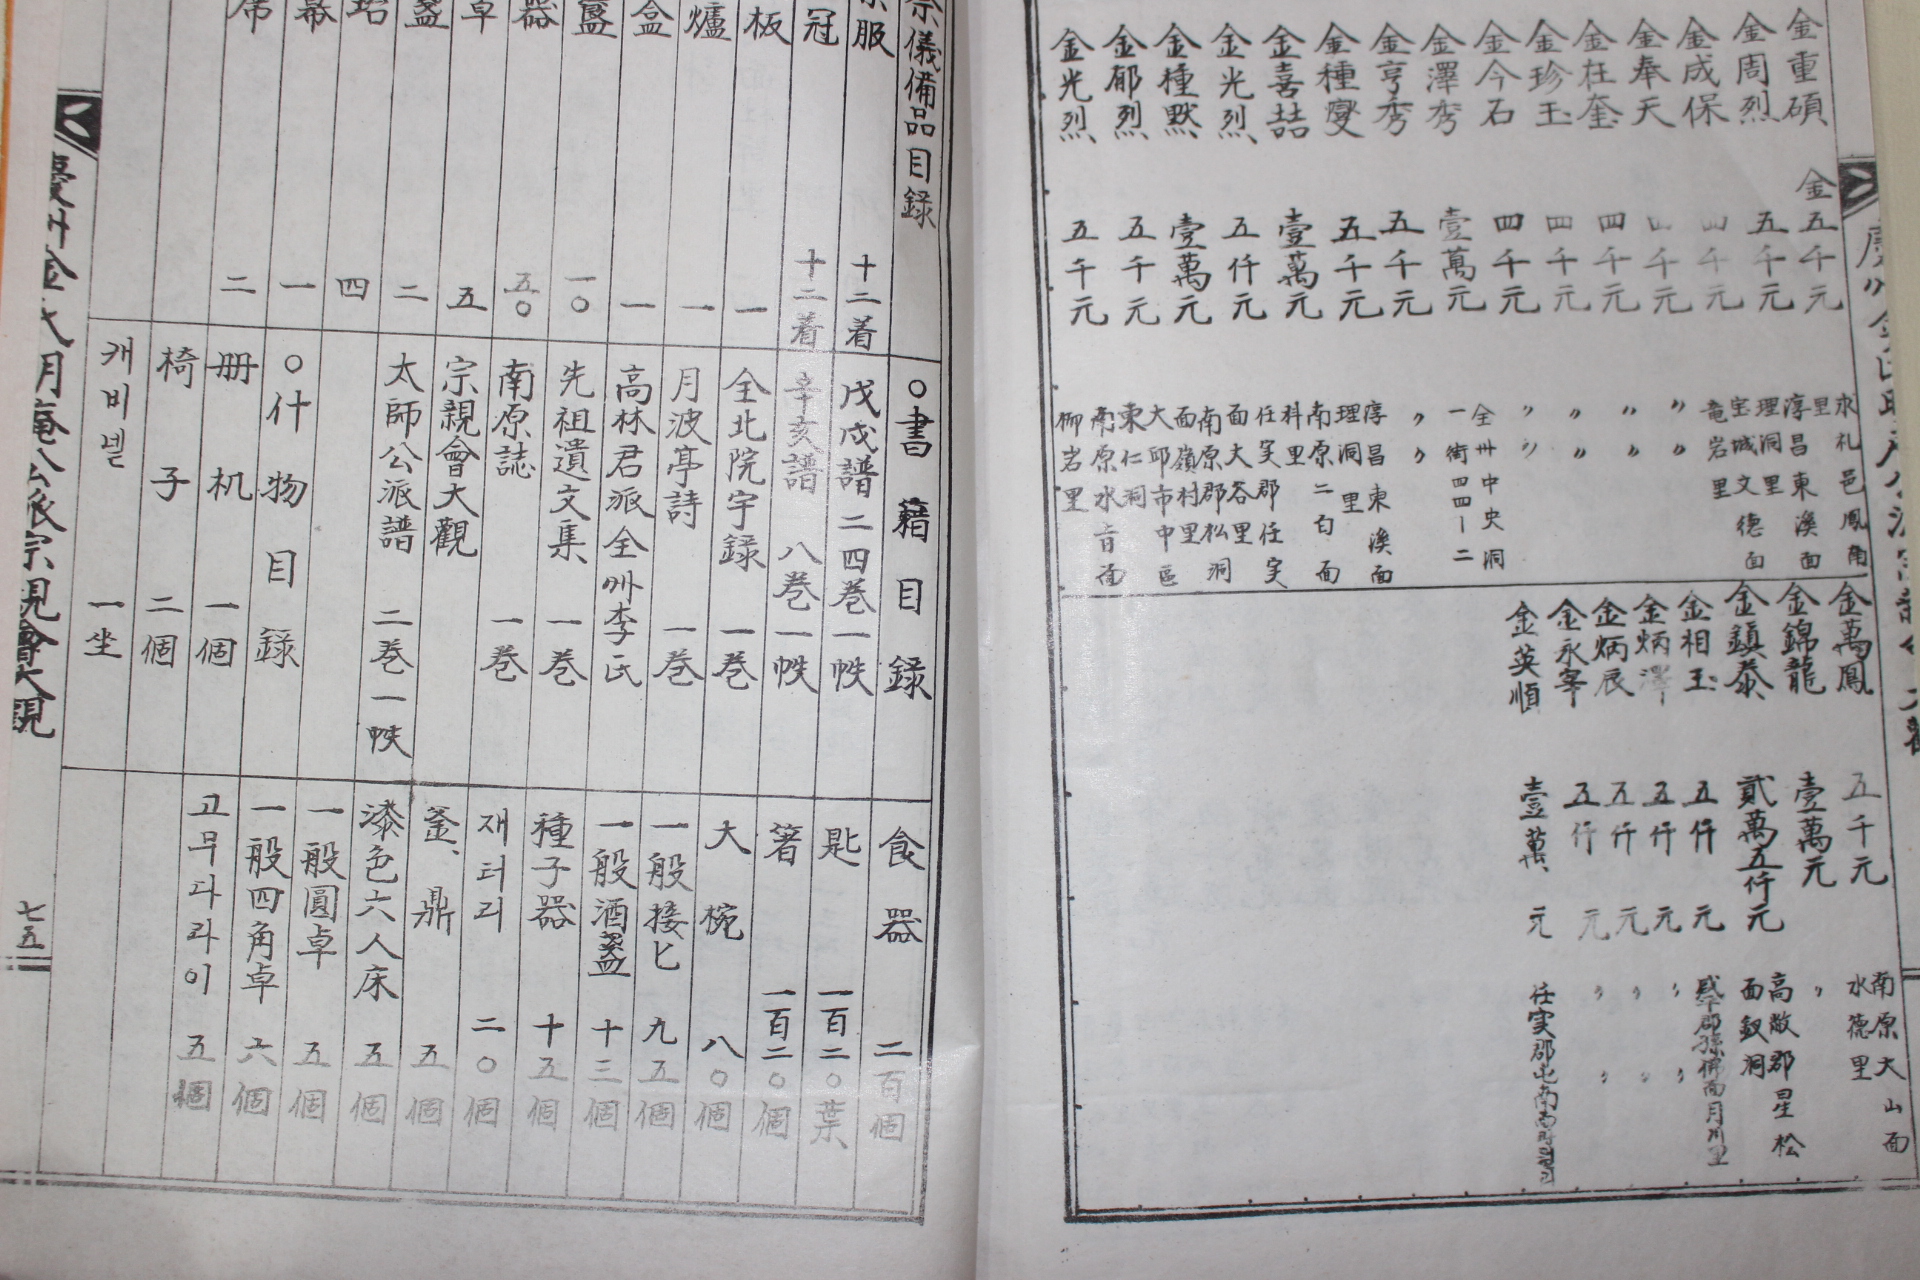 金重碩 金五千元
金周烈 五千元
金成保 四千元
金奉天 四千元
金在奎 四千元
金珍玉 四千元
金今石 四千元
金澤秀 壹萬元
金亨秀 五千元
金種燮 五千元
金喜喆 壹萬元
金光烈 五仟元
金種默 壹萬元
金郁烈 五千元
金光烈 五千元
求礼邑鳳南
里
淳昌東溪面
理洞里
宝城文德面
竜岩里
〃 〃
〃 〃
〃 〃
〃 〃
全州中央洞
一街四四一二
〃 〃
淳昌東溪面
理洞里
南原二白面
科里
任実郡任実
面大谷里
南原郡松洞
面嶺村里
大邱市中區
東仁洞
南原水旨面
柳岩里
金萬鳳 五千元 南原大山面
水德里
金錦龍 壹萬元 〃
金鎭泰 貳萬五仟元 高敞郡星松
面釵洞
金相玉 五仟元
金炳澤 五仟元 〃 〃
金炳辰 五仟元 〃 〃
金永宰 五仟元 〃 〃
金英順 壹萬元
祭儀備品目錄
祭服 十二着
冠 十二着
板 一
爐 一
盒 一
一〇
器 五〇
卓 五
盞 二
四
幕 一
席 二
○書籍目錄
戊戌譜 二四巻一帙
辛亥譜 八巻一帙
全北院宇録 一巻
月波亭詩 一巻
高林君派全州李氏
先祖遺文集 一巻
南原誌 一巻
宗親會大觀
太師公派譜 二巻一帙
○什物目錄
册机 一個
椅子 二個
캐비넽 一坐
食器 二百個
匙 一百二〇葉
箸 一百二〇個
大椀 八〇個
一般接匕 九五個
一般酒盞 十三個
種子器 十五個
재터리 二〇個
釜、鼎 五個
漆色六人床 五個
一般圓卓 五個
一般四角卓 六個
고무다라이 五個
慶州金氏月菴公派宗親會大観
七五